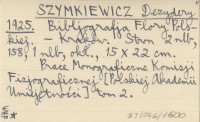 SZYMKIEWICZ Dezydery
1925. Bibljografja Flory Pols-
kiej. — Kraków. Stron 2 nlb,
158, 1 nlb, okł. 15 x 22 cm.
Prace Monograficzne Komisji
Fizjograficznej [Polskiej Akademii
Umiejętności] tom 2.
27/046/1600